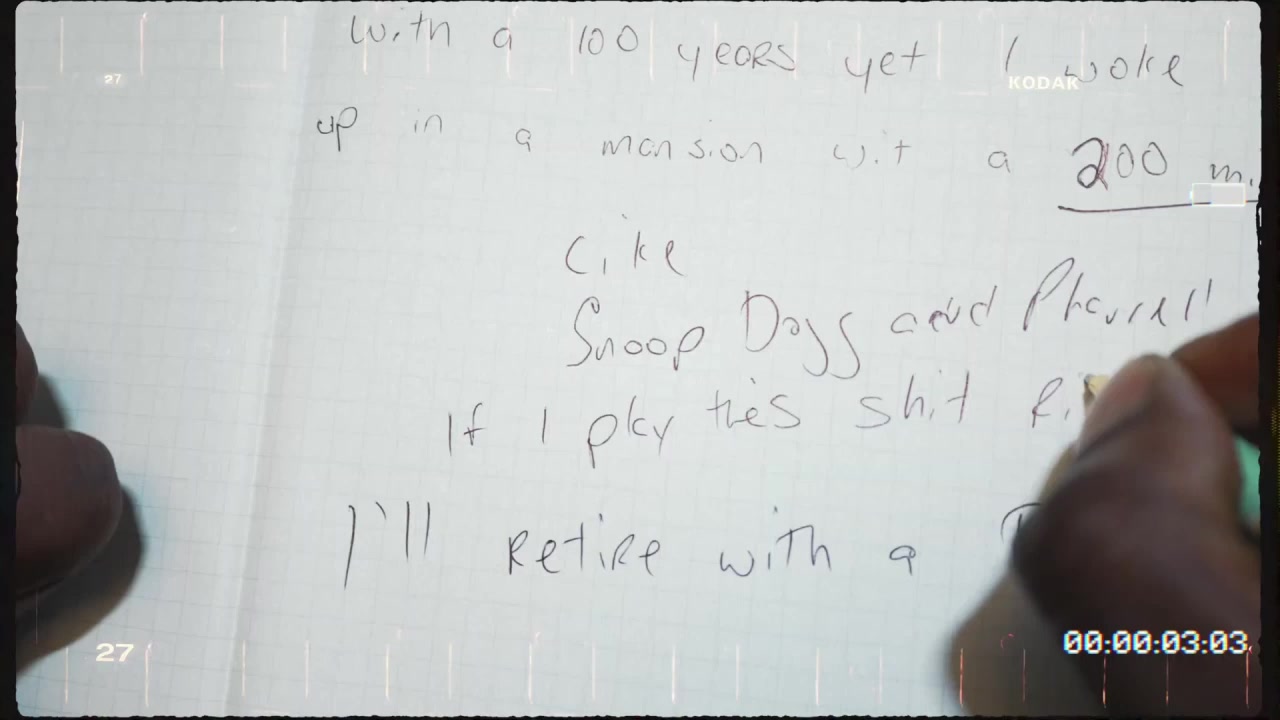 With a 100 years yet I woke
27
KODAK
up in a mansion wit a 200 m.
Like
Snoop Dogg and Pharrell
If I play this shit Ri
I'll retire with a
27
00:00:03:03